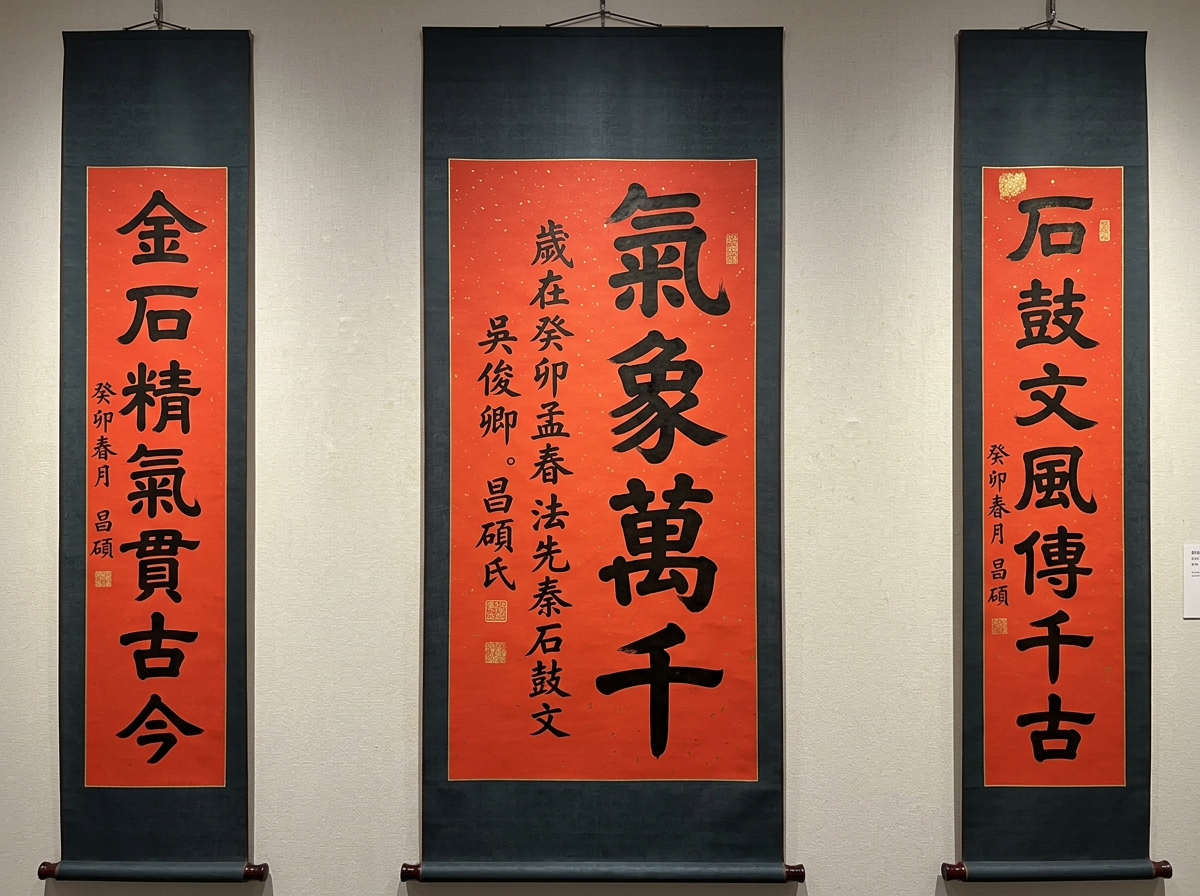 石鼓文風傳千古
癸卯春月 昌碩
氣象萬千
歲在癸卯孟春法先秦石鼓文
吳俊卿。昌碩氏
金石精氣貫古今
癸卯春月 昌碩